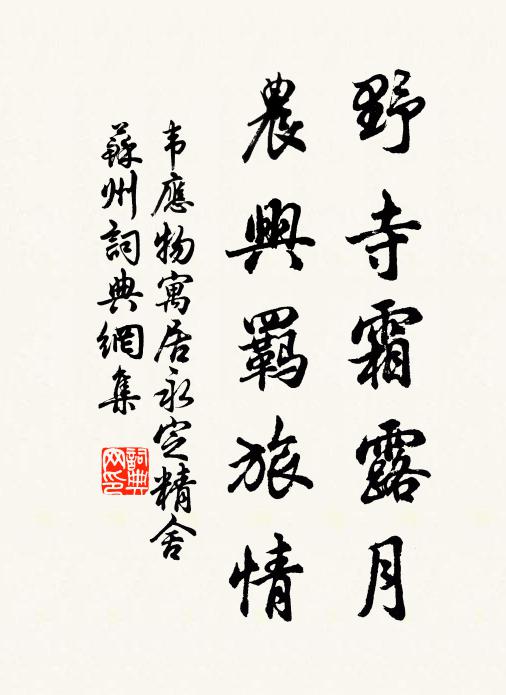 野寺霜露月
農興羈旅情
韦應物寓居永定精舍
蘇州詞典網集
詞典网印